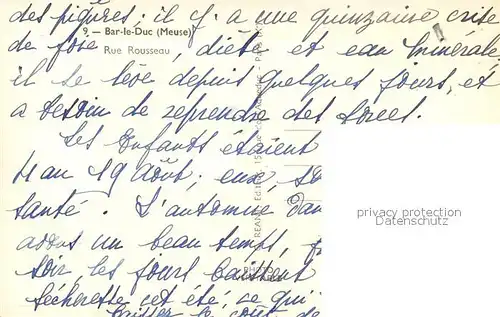 des piqûres ; il y a une quinzaine crise
9. — Bar-le-Duc (Meuse)
de foie, diète et eau minérale
Rue Rousseau
il se lève depuis quelques jours, et
a besoin de reprendre des forces.
Les enfants étaient
au 19 Août ; eux,
santé. L'automne dan
avons un beau temps,
soir, les jours baissent
sécheresse cet été, ce qui
privacy protection
Datenschutz
PHOTO